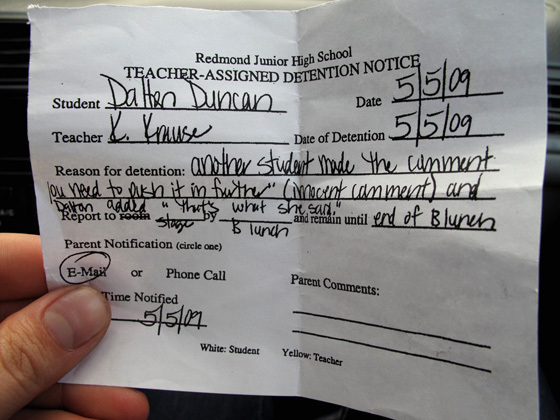 Redmond Junior High School
TEACHER-ASSIGNED DETENTION NOTICE
Student Dalton Duncan Date 5/5/09
Teacher K. Krause Date of Detention 5/5/09
Reason for detention: another student made the comment
you need to push it in further" (innocent comment) and
Dalton added "that's what she said."
Report to room stage by B lunch and remain until end of B lunch
Parent Notification (circle one)
E-Mail or Phone Call
Time Notified Parent Comments:
5/5/09
White: Student Yellow: Teacher